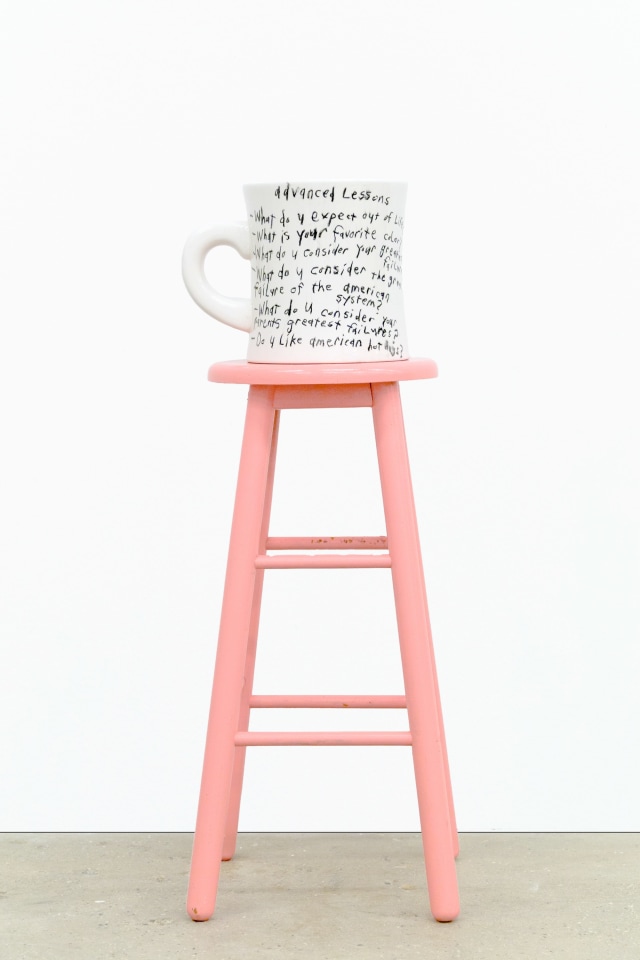 advanced Lessons
-What do y expect out of Li
-What is your favorite color
-What do u consider your greate
failure
-What do y consider the gre
failure of the american
system?
-What do u consider your
parents greatest failures?
-Do y Like american hot dogs?